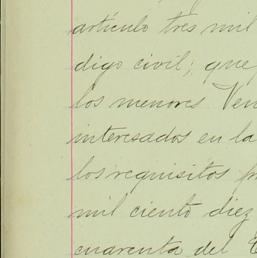 artículo tres mil
digo civil; que
los menores Ven
interesados en la
los requisitos pr
mil ciento diez
cuarenta del C